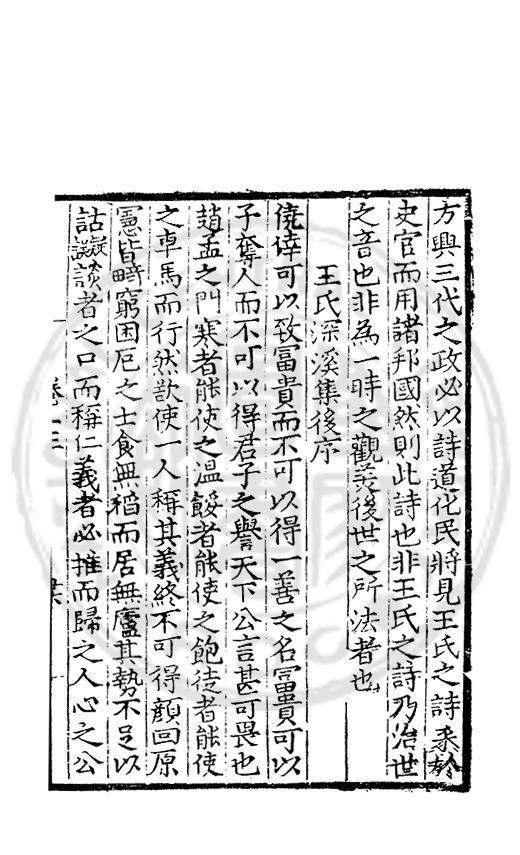 方興三代之政必以詩道化民將見王氏之詩采於
史官而用諸邦國然則此詩也非王氏之詩乃治世
之音也非為一時之觀美後世之所法者也
王氏深溪集後序
僥倖可以致富貴而不可以得一善之名富貴可以
子奪人而不可以得君子之譽天下公言甚可畏也
趙孟之門寒者能使之溫餒者能使之飽徒者能使
之車馬而行然欲使一人稱其義終不可得顏回原
憲皆畸窮困厄之士食無稻而居無廬其勢不足以
詁談者之口而稱仁義者必推而歸之人心之公
卷十三